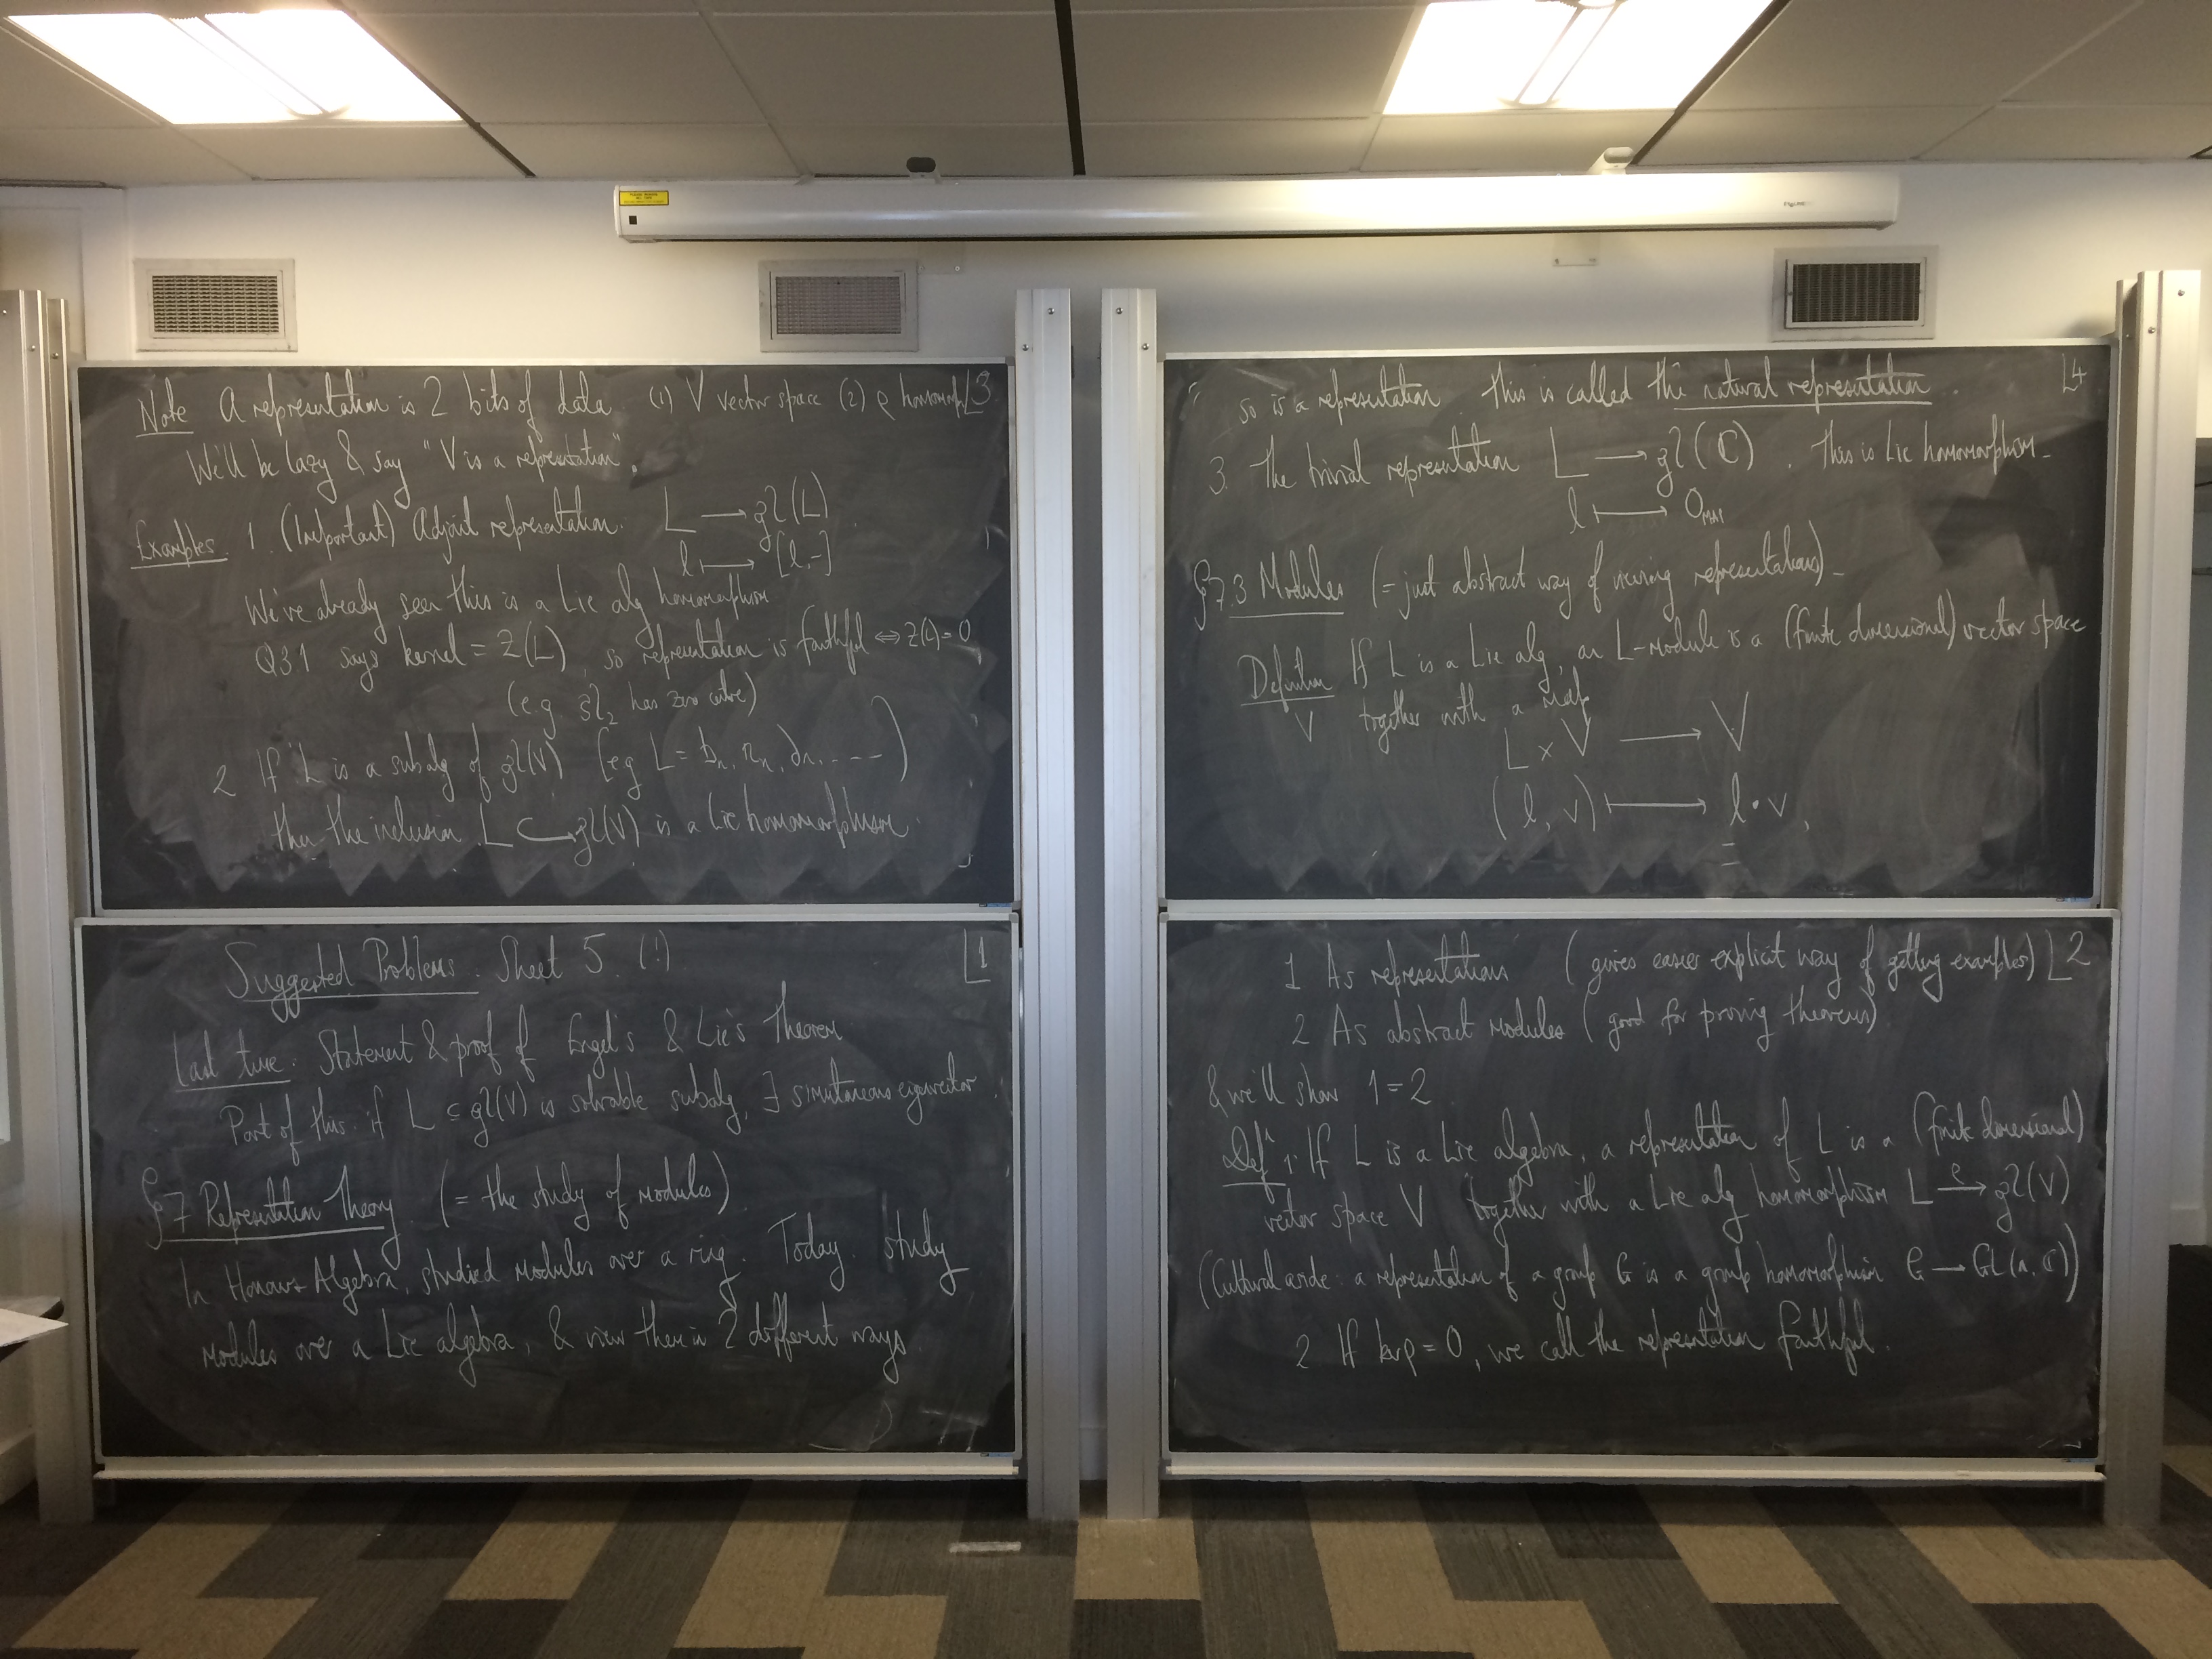 Suggested Problems. Sheet 5. (!) 1
Last time: Statement & proof of Engel's & Lie's Theorem
Part of this: if L ⊆ gl(V) is solvable subalg, ∃ simultaneous eigenvector.
§7 Representation Theory. (= the study of modules)
In Honours Algebra, studied modules over a ring. Today: study
modules over a Lie algebra, & view them in 2 different ways.
1 As representations (gives easier explicit way of getting examples) 2
2 As abstract modules (good for proving theorems)
& we'll show 1=2
Defⁿ 1. If L is a Lie algebra, a representation of L is a (finite dimensional)
vector space V together with a Lie alg homomorphism L —ρ→ gl(V)
(Cultural aside: a representation of a group G is a group homomorphism G → GL(n, ℂ))
2 If ker ρ = 0, we call the representation faithful.
Note A representation is 2 bits of data (1) V vector space (2) ρ homomorph 3
We'll be lazy & say "V is a representation".
Examples. 1. (Important) Adjoint representation. L → gl(L)
l ↦ [l, -]
We've already seen this is a Lie alg homomorphism
Q3.1 says kernel = Z(L), so representation is faithful ⇔ Z(L) = 0
(e.g. sl₂ has zero centre)
2 If L is a subalg of gl(V) (eg L = bₙ, nₙ, dₙ, ....)
then the inclusion L ↪ gl(V) is a Lie homomorphism.
so is a representation this is called the natural representation 4
3. The trivial representation L → gl(ℂ). This is Lie homomorphism.
l ↦ 0MAT
§7.3 Modules (= just abstract way of viewing representations).
Definition If L is a Lie alg, an L-module is a (finite dimensional) vector space
V together with a map
L × V → V
(l, v) ↦ l · v,